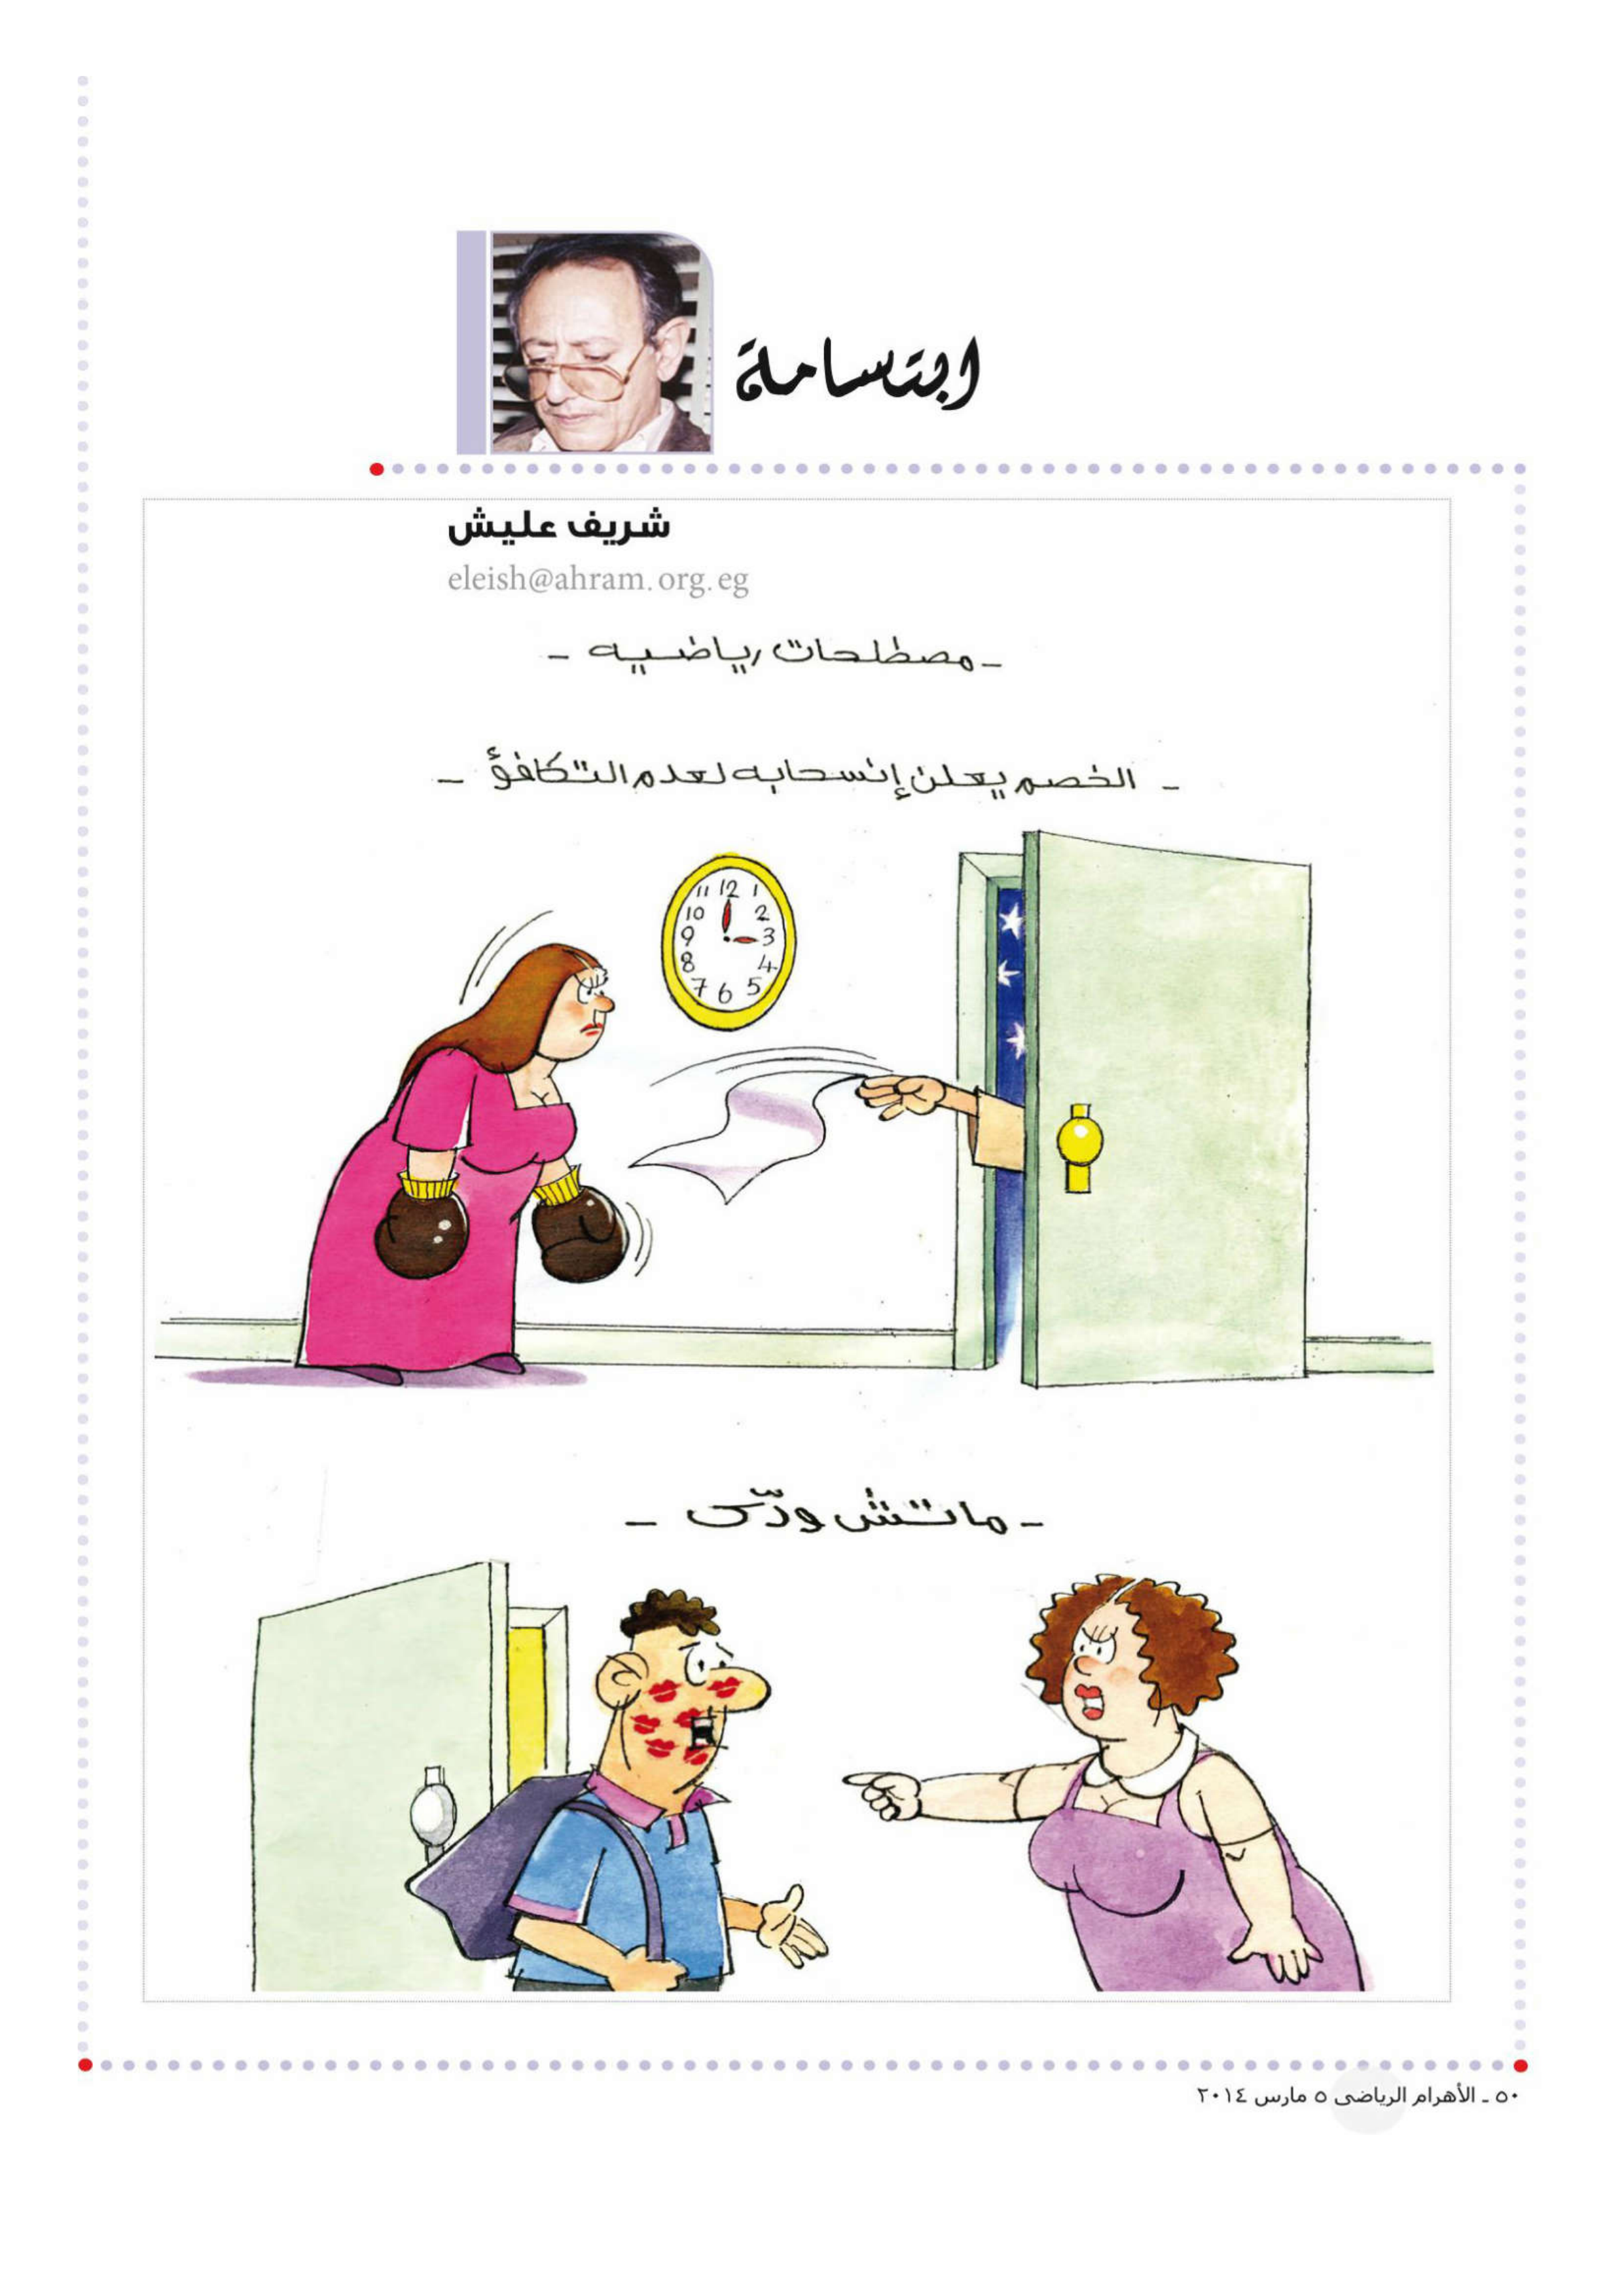 ابتسامة
شريف عليش
eleish@ahram.org.eg
- مصطلحات رياضيه -
- الخصم يعلن إنسحابه لعدم التكافؤ -
11 12 1
10 2
9 3
8 4
7 6 5
- ماتش ودّى -
٥٠ ـ الأهرام الرياضى ٥ مارس ٢٠١٤